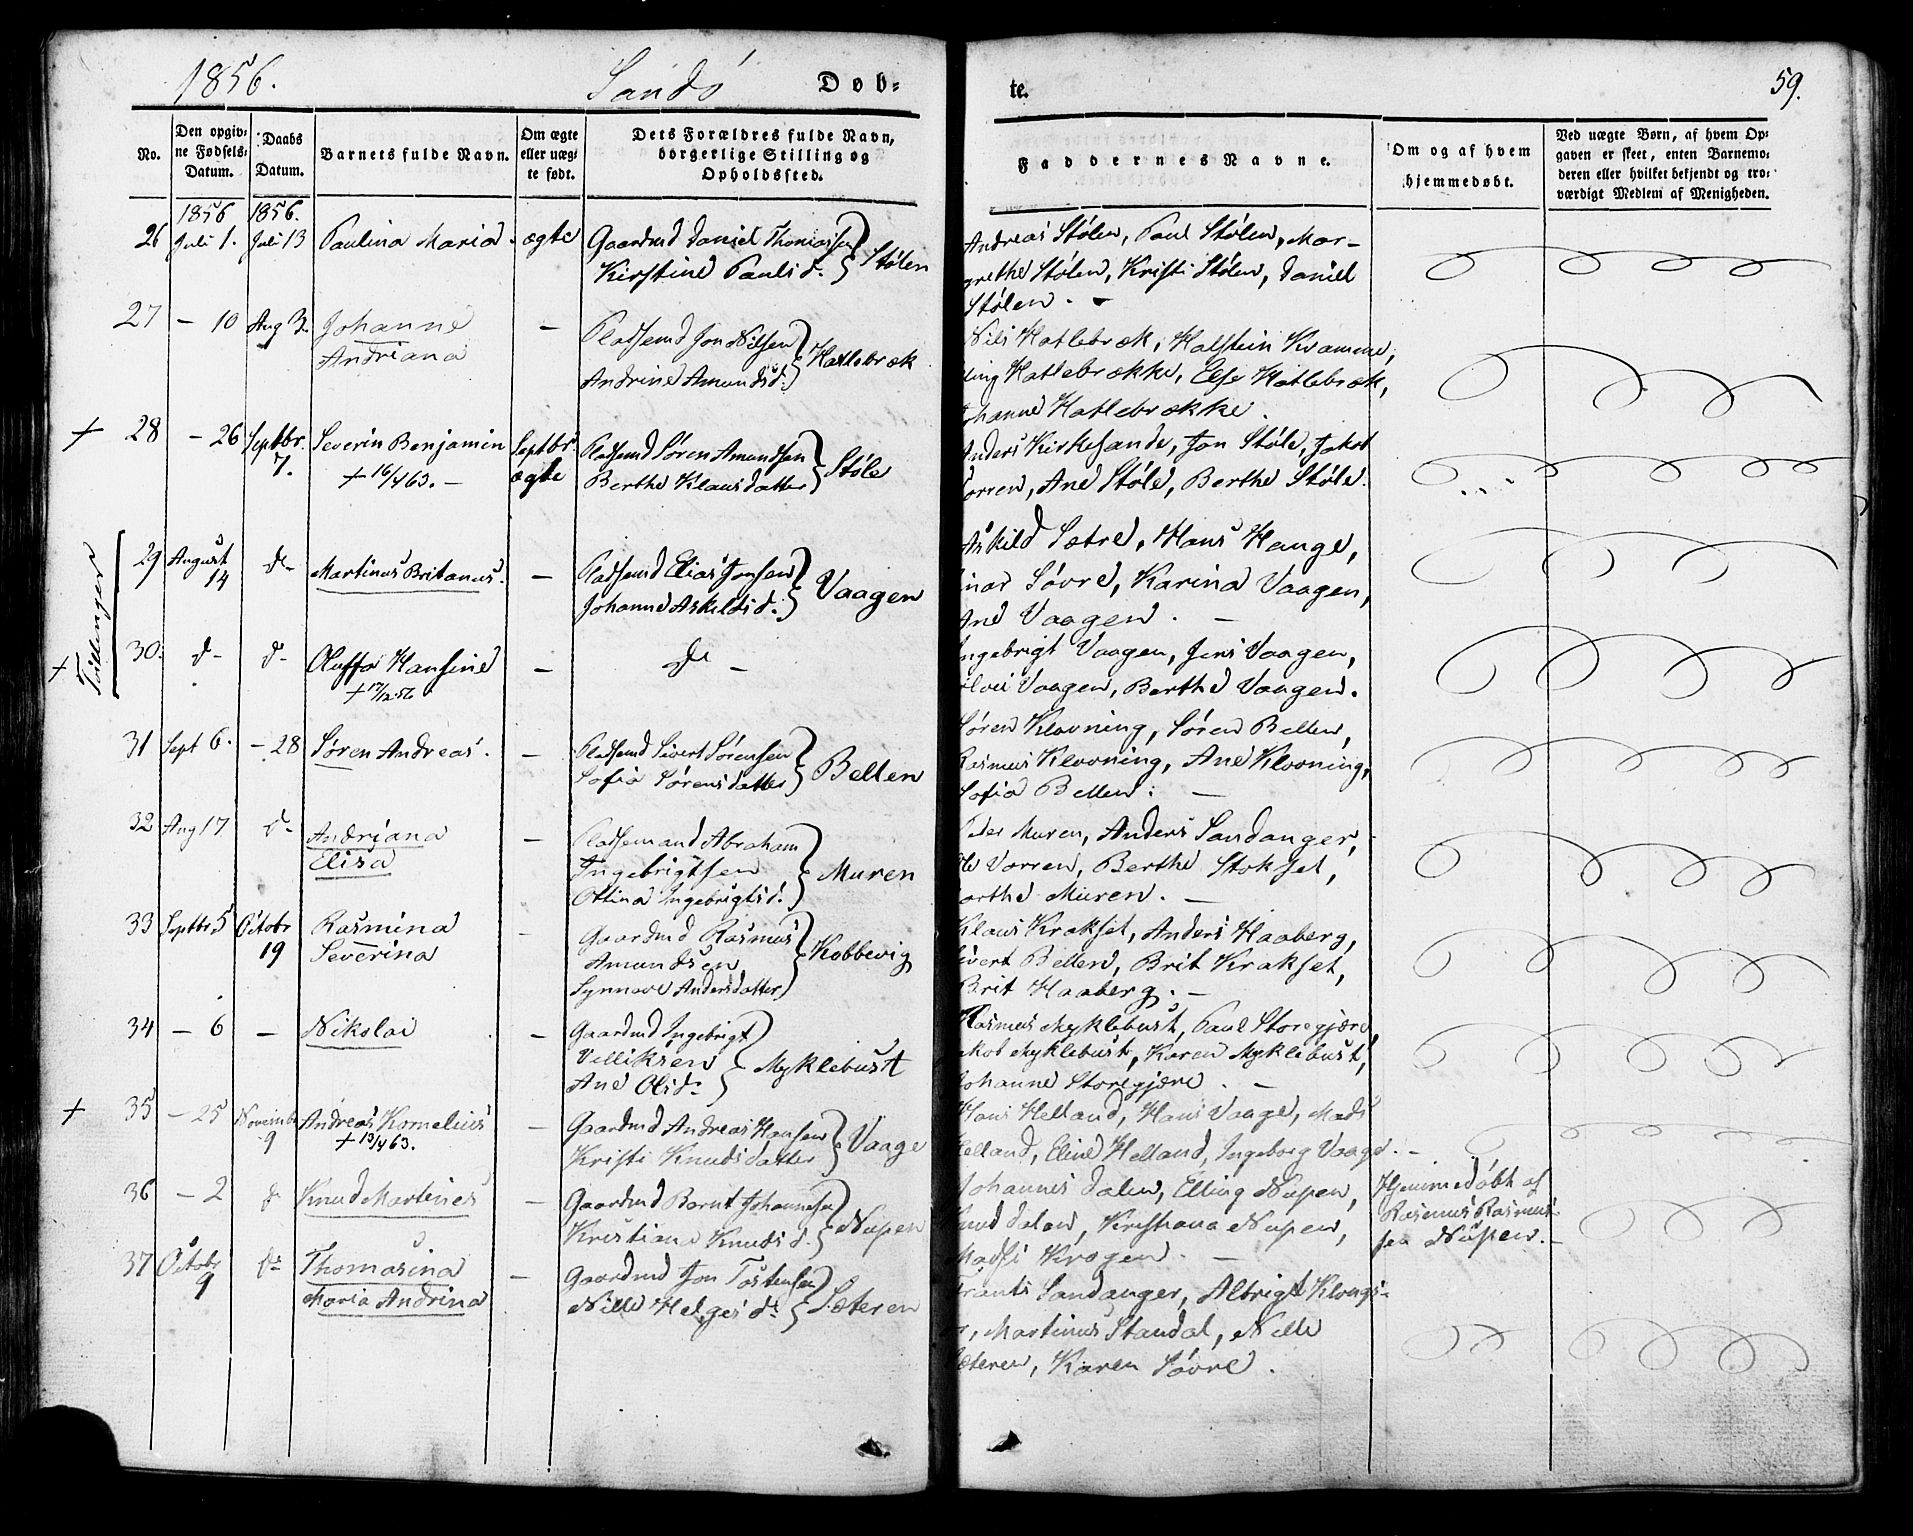 1856. Sandö Døb-
te. 59.
No. Den opgivne Fødsels-Datum. Daabs Datum. Barnets fulde Navn. Om ægte eller uægte født. Dets Forældres fulde Navn, borgerlige Stilling og Opholdssted. Faddernes Navne. Om og af hvem hjemmedøbt. Ved uægte Børn, af hvem Opgaven er skeet, enten Barnemoderen eller hvilket bekjendt og troværdigt Medlem af Menigheden.
1856 1856.
26 Juli 1. Juli 13 Paulina Maria. ægte Gaardmd Daniel Thomassen
Kirstine Paulsd. Stølen
Andreas Stølen, Paul Stølen, Mar-
grethe Stølen, Kristi Stølen, Daniel
Stølen. -
27 - 10 Aug 3. Johanne
Andriana - Pladsemd Jon Nilsen
Andrine Amundsd. Hatlebræk
Nils Hatlebræk, Halstein Kvamme,
Hatlebrække, Else Hatlebræk,
Hatlebrække.
+ 28 - 26 Septbr.
7. Severin Benjamin
+ 16/4 63. - Septbr
ægte Pladsemd Søren Amundsen
Berthe Klausdatter Støle
Anders Kirkesande, Jon Støle, Jakob
Vorren, Ane Støle, Berthe Støle.
Tvillinger
29 August
14 do Martinus Britanus. - Pladsemd Elias Jonsen
Johanne Askildsd. Vaagen
Askild Sætre, Hans Hauge,
Søvre, Karina Vaagen,
Ane Vaagen. -
+ 30. do do Oluffa Hansine
+ 17/12 56 - do -
Ingebrigt Vaagen, Jens Vaagen,
Vaagen, Berthe Vaagen.
31 Sept 6. - 28 Søren Andreas. - Pladsemd Sivert Sørensen
Sofia Sørensdatter Bellen
Søren Klovning, Søren Bellen,
Rasmus Klovning, Ane Klovning,
Sofia Bellen. -
32 Aug 17 do Andriana
Elisa - Pladsemand Abraham
Ingebrigtsen
Ottina Ingebrigtsd. Muren
Peder Muren, Anders Sandanger,
Ole Vorren, Berthe Stokset,
Muren. -
33 Septbr 5 Octobr
19 Rasmina
Severina - Gaardmd Rasmus
Amundsen
Synnove Andersdatter Kobbevig
Klaus Krakset, Anders Haaberg,
Sivert Bellen, Brit Krakset,
Brit Haaberg. -
34 - 6 - Nikolai - Gaardmd Ingebrigt
Villiksen
Ane Olsd. Myklebust
Rasmus Myklebust, Paul Storegjære,
Jakob Myklebust, Karen Myklebust,
Johanne Storegjære. -
+ 35 - 25 Novembr
9 Andreas Kornelius
+ 13/4 63. - Gaardmd Andreas Hansen
Kristi Knudsdatter Vaage
Hans Helland, Hans Vaage, Mads
Helland, Eline Helland, Ingeborg Vaage. -
36 - 2 do Knud Martines - Gaardmd Bernt Johannesen
Kristiane Knudsd. Nupen
Johannes Dalen, Elling Nupen,
Knud Dalen, Kristiana Nupen,
Krogen. -
Hjemmedøbt af
Rasmus Rasmus-
sen Nupen. -
37 Octobr
9 do Thomasina
Maria Andrina - Gaardmd Jon Tostensen
Nille Helgesd. Sæteren
Frants Sandanger, Albrigt
Martinus Standal, Nille
Sæteren, Karen Søvre.